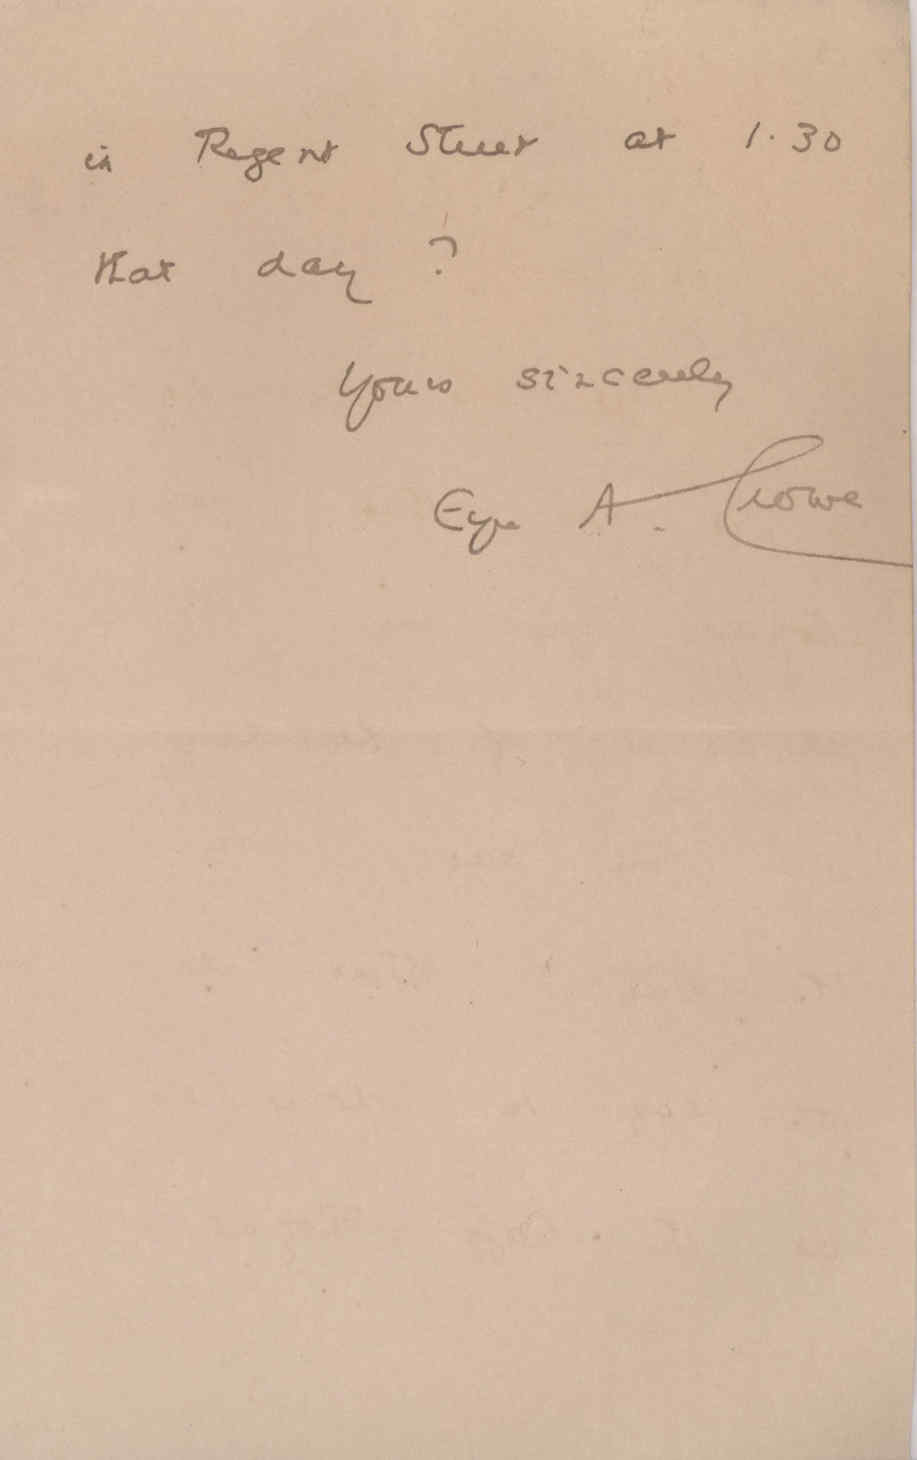 in Regent Street at 1.30
that day?
Yours sincerely
Eyre A. Crowe